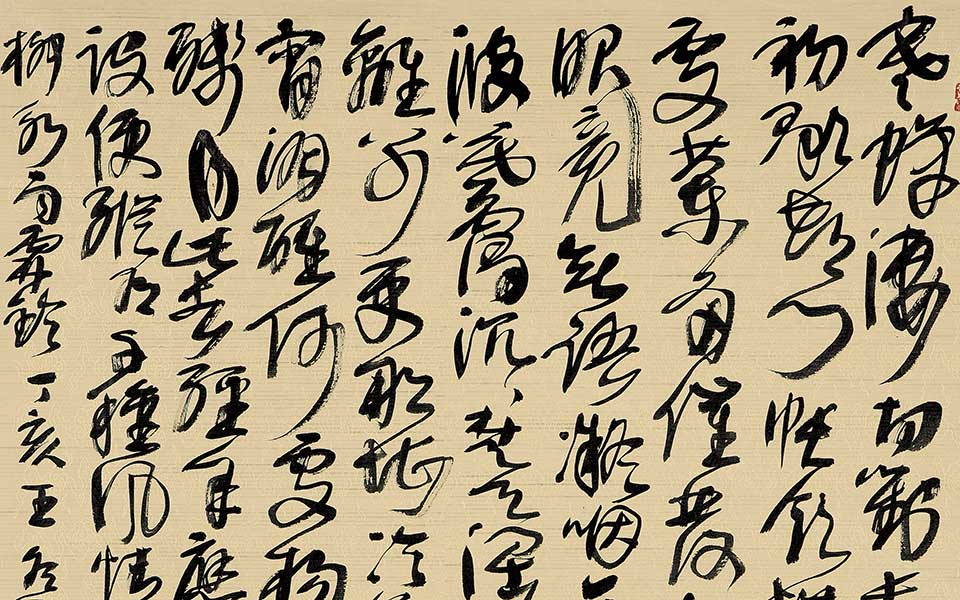 寒蟬淒切對
初歇都門帳飲
處蘭舟催發
眼竟無語凝咽
波暮靄沉沉楚天闊
離別更那堪冷
宵酒醒何處楊
殘月此去經年應
設便縱有千種風情
柳永雨霖鈴丁亥王冬